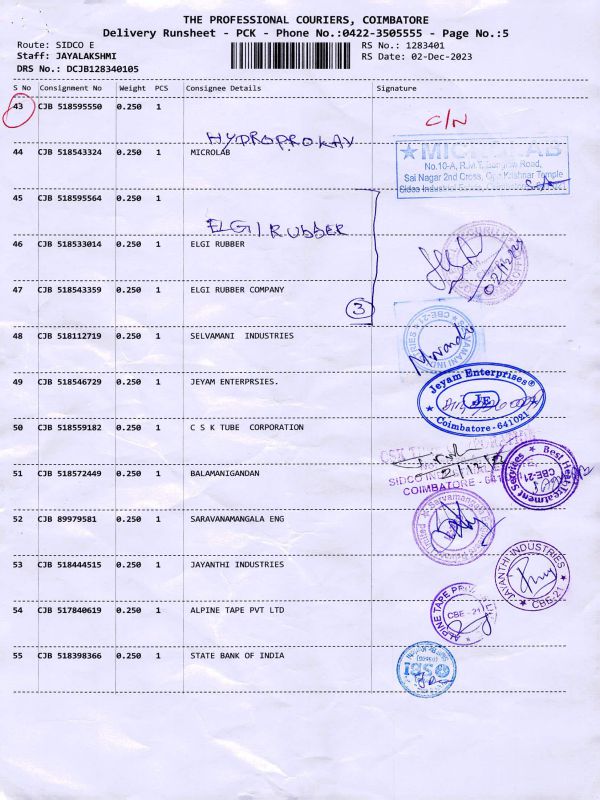 THE PROFESSIONAL COURIERS, COIMBATORE
Delivery Runsheet - PCK - Phone No.:0422-3505555 - Page No.:5
Route: SIDCO E
RS No.: 1283401
Staff: JAYALAKSHMI
RS Date: 02-Dec-2023
DRS No.: DCJB128340105
S No Consignment No Weight PCS Consignee Details Signature
43 CJB 518595550 0.250 1
C/N
HYDROPROKAV
44 CJB 518543324 0.250 1 MICROLAB
MICROLAB
No.10-A, R.M.T. Bunglow Road,
Sai Nagar 2nd Cross, Opp Kashnar Temple
45 CJB 518595564 0.250 1
ELGI RUBBER
46 CJB 518533014 0.250 1 ELGI RUBBER
02/12/23
47 CJB 518543359 0.250 1 ELGI RUBBER COMPANY
3
48 CJB 518112719 0.250 1 SELVAMANI INDUSTRIES
49 CJB 518546729 0.250 1 JEYAM ENTERPRSIES.
Jeyam Enterprises
JE
Coimbatore - 641021
50 CJB 518559182 0.250 1 C S K TUBE CORPORATION
51 CJB 518572449 0.250 1 BALAMANIGANDAN
COIMBATORE - 641
Best Heat Treatment Services
CBE-21
52 CJB 89979581 0.250 1 SARAVANAMANGALA ENG
53 CJB 518444515 0.250 1 JAYANTHI INDUSTRIES
JAYANTHI INDUSTRIES
CBE-21
54 CJB 517840619 0.250 1 ALPINE TAPE PVT LTD
CBE - 21
55 CJB 518398366 0.250 1 STATE BANK OF INDIA
SBI